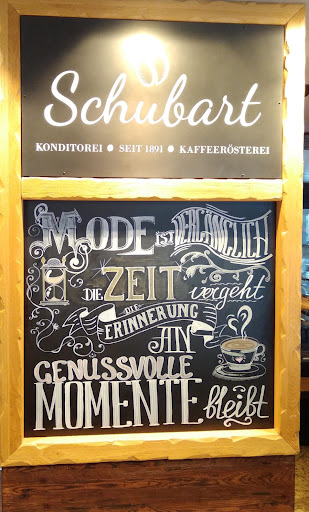 Schubart
KONDITOREI • SEIT 1891 • KAFFEERÖSTEREI
MODE IST VERGÄNGLICH
DIE ZEIT vergeht
DIE
ERINNERUNG
AN
GENUSSVOLLE
MOMENTE bleibt